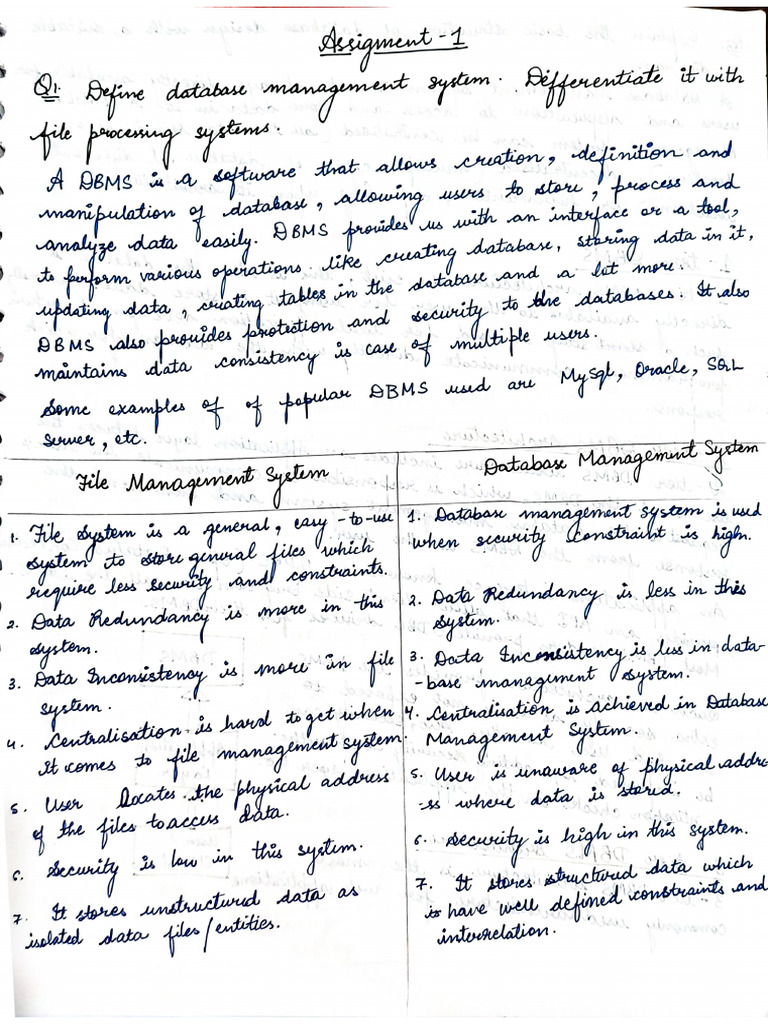 Assigment-1
Q1. Define database management system. Differentiate it with
file processing systems.
A DBMS is a software that allows creation, definition and
manipulation of database, allowing users to store, process and
analyze data easily. DBMS provides us with an interface or a tool,
to perform various operations like creating database, storing data in it,
updating data, creating tables in the database and a lot more.
DBMS also provides protection and security to the databases. It also
maintains data consistency is case of multiple users.
Some examples of of popular DBMS used are MySql, Oracle, SQL
Server, etc.
File Management System
1. File System is a general, easy-to-use
system to store general files which
require less security and constraints.
2. Data Redundancy is more in this
system.
3. Data Inconsistency is more in file
system.
4. Centralisation is hard to get when
it comes to file management system.
5. User locates the physical address
of the files to access data.
6. Security is low in this system.
7. It stores unstructured data as
isolated data files/entities.
Database Management System
1. Database management system is used
when security constraint is high.
2. Data Redundancy is less in this
system.
3. Data Inconsistency is less in data-
-base management system.
4. Centralisation is achieved in Database
Management System.
5. User is unaware of physical addre
-ss where data is stored.
6. Security is high in this system.
7. It stores structured data which
is have well defined constraints and
interrelation.